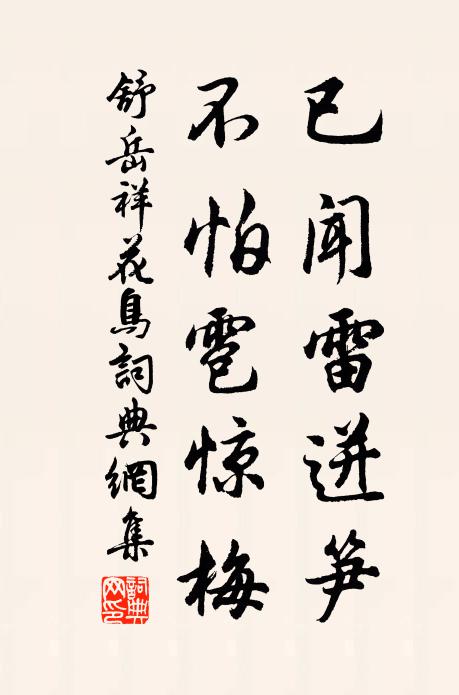 已闻雷迸笋
不怕雹惊梅
舒岳祥花鳥詞典網集
詞典网印